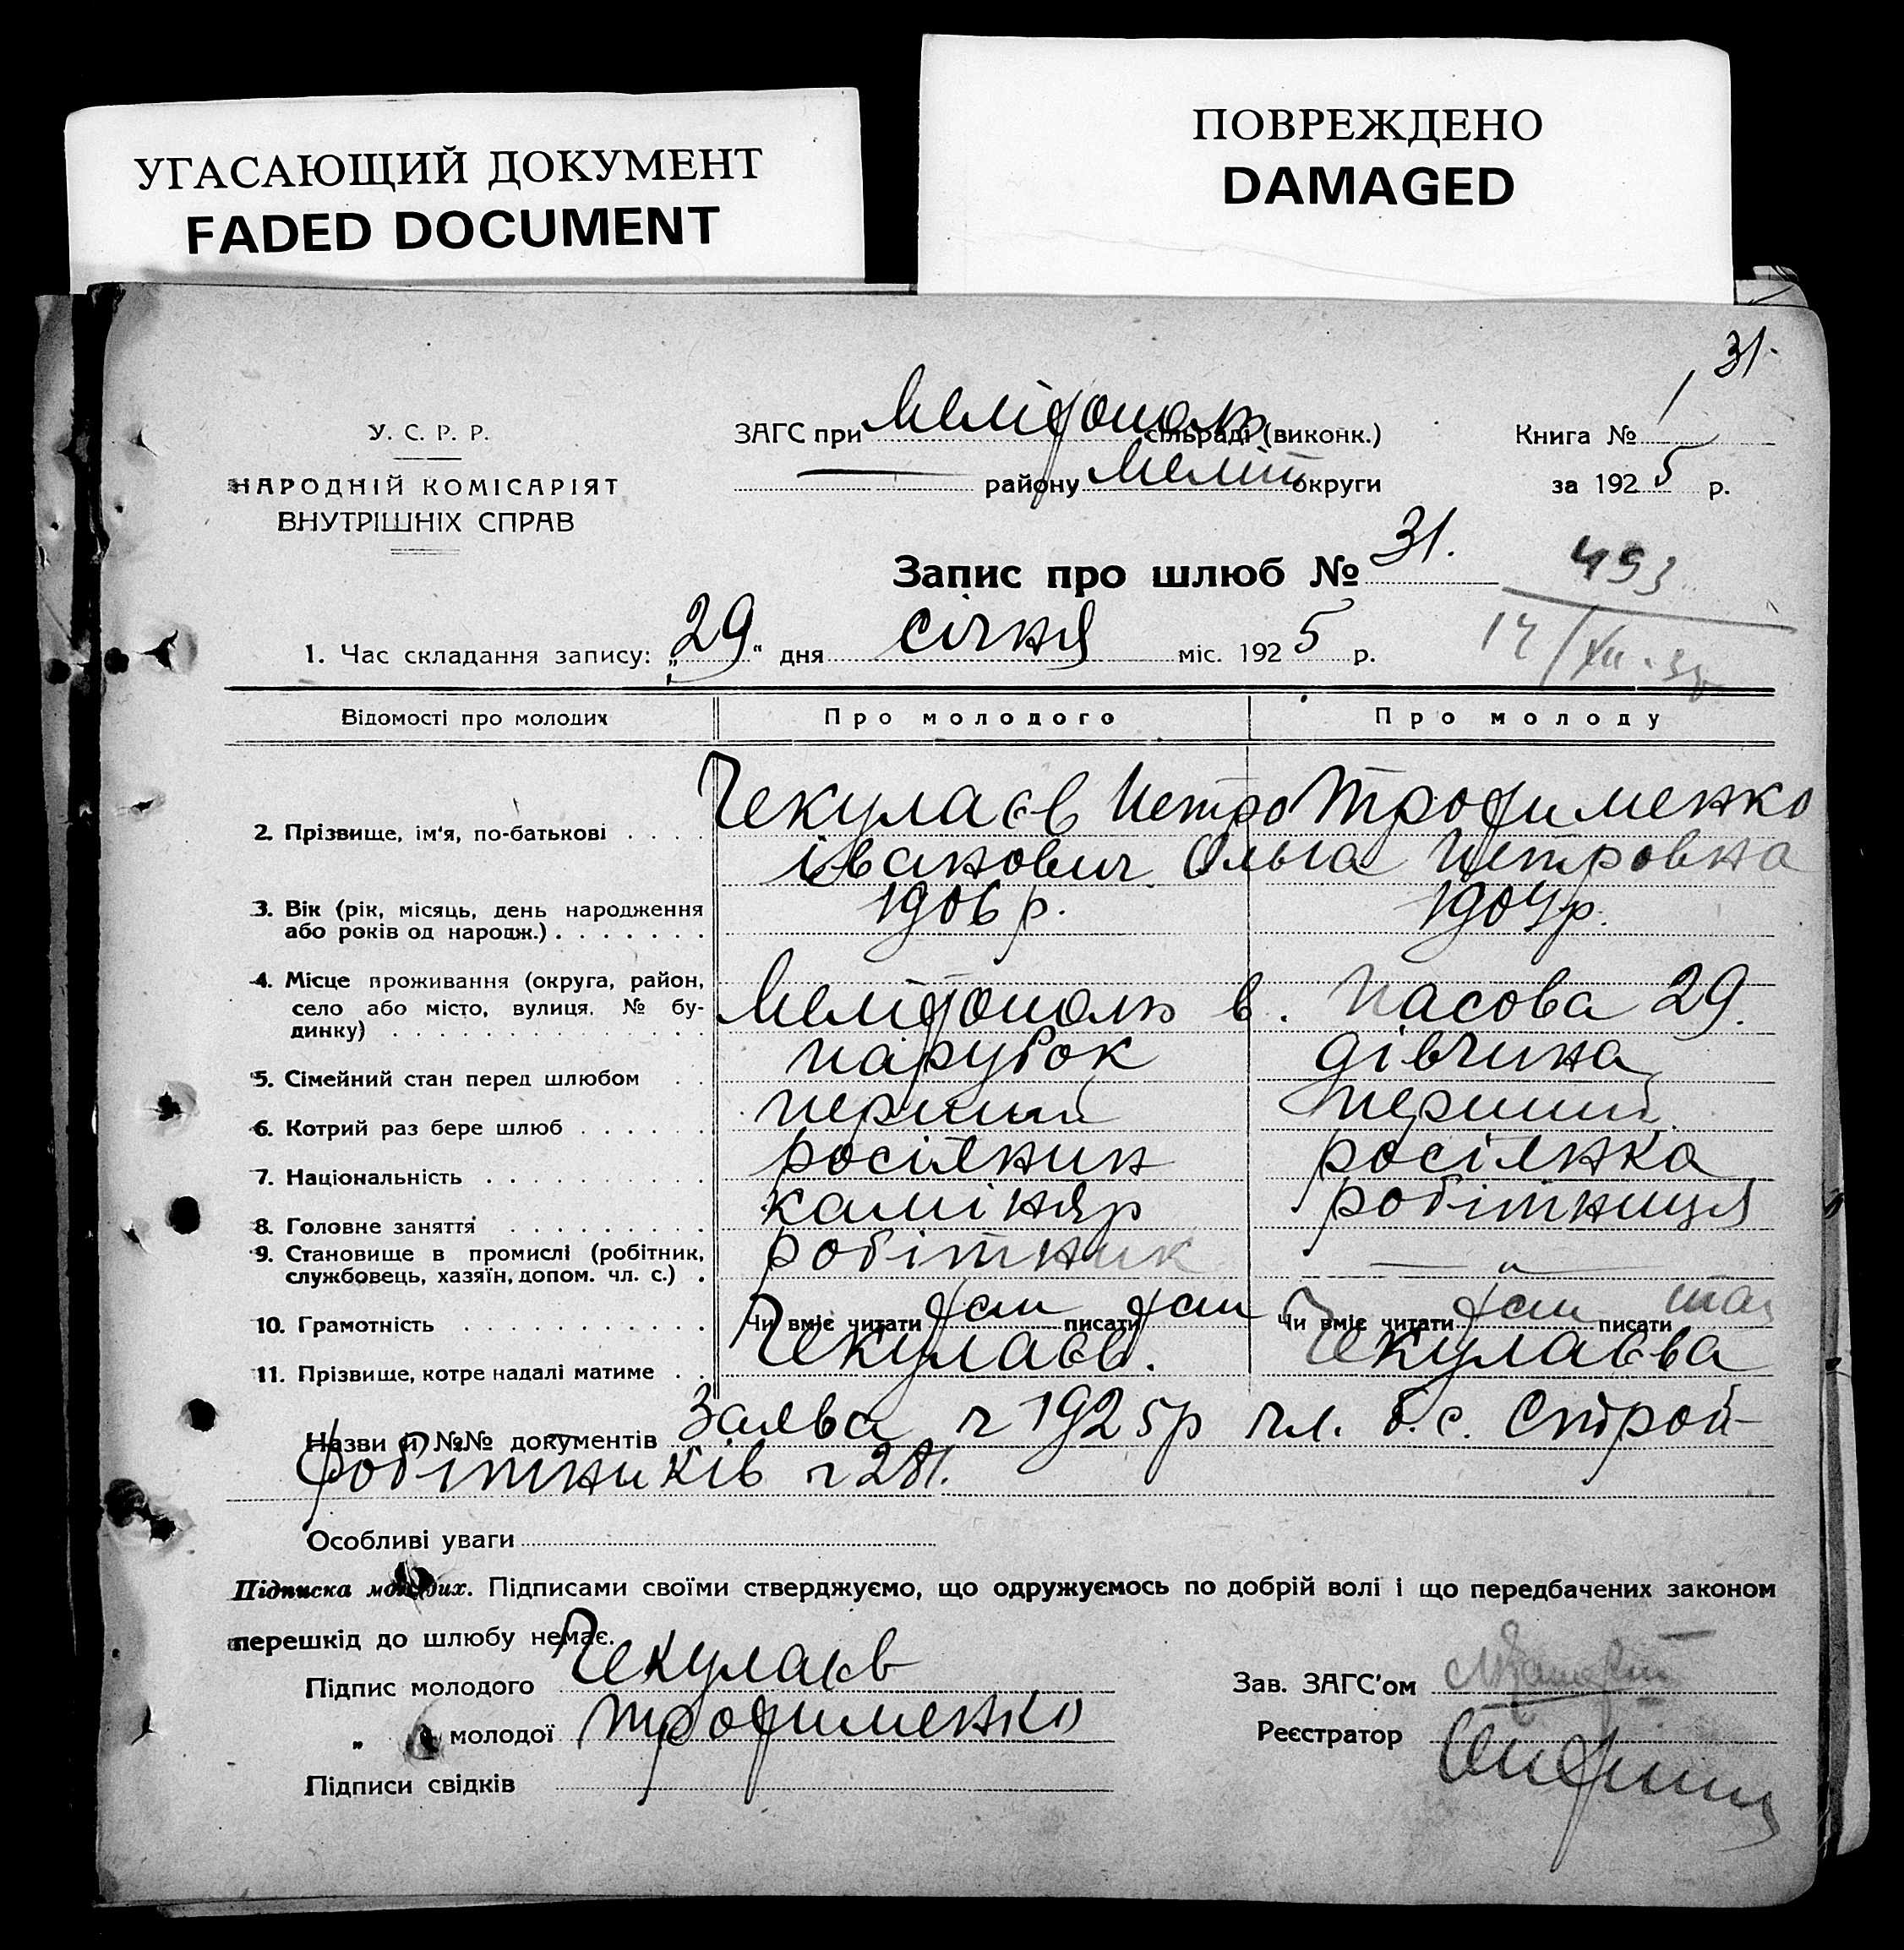 УГАСАЮЩИЙ ДОКУМЕНТ
FADED DOCUMENT
ПОВРЕЖДЕНО
DAMAGED
31.
У. С. Р. Р.
НАРОДНІЙ КОМІСАРІЯТ
ВНУТРІШНІХ СПРАВ
ЗАГС при Мелітополь сільраді (виконк.)
району Меліт округи
Книга №
за 1925 р.
Запис про шлюб № 31.
493
1. Час складання запису: „29“ дня січня міс. 1925 р.
Відомості про молодих
Про молодого
Про молоду
2. Прізвище, ім'я, по-батькові . . . .
Чекулаєв Петро
івановіч
Трофименко
Ольга Петровна
3. Вік (рік, місяць, день народження
або років од народж.) . . . . . . .
1906 р.
1904 р.
4. Місце проживання (округа, район,
село або місто, вулиця. № бу-
динку) . . . . . . . . . . . . . .
Мелітополь в. Пасова 29.
5. Сімейний стан перед шлюбом . .
парубок
дівчина
6. Котрий раз бере шлюб . . . . . .
перший
перший
7. Національність . . . . . . . . . .
росіянин
росіянка
8. Головне заняття . . . . . . . . .
каміняр
робітниця
9. Становище в промислі (робітник,
службовець, хазяїн, допом. чл. с.) .
робітник
— „ —
10. Грамотність . . . . . . . . . . .
Чи вміє читати так писати так
Чи вміє читати так писати так
11. Прізвище, котре надалі матиме . .
Чекулаєв.
Чекулаєва
Назви й №№ документів Заява ч 1925р чл. б. с. Строй-
робітників ч 281.
Особливі уваги
Підписка молодих. Підписами своїми стверджуємо, що одружуємось по добрій волі і що передбачених законом
перешкід до шлюбу немає.
Підпис молодого Чекулаєв
„ молодої Трофименко
Підписи свідків
Зав. ЗАГС'ом
Реєстратор